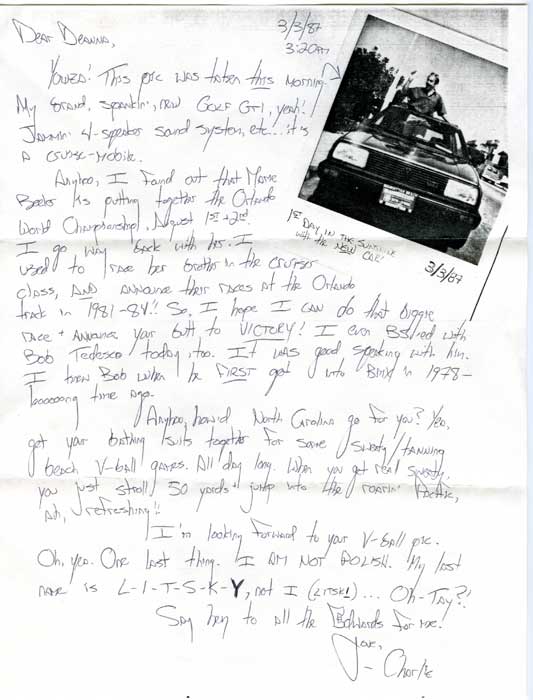 Dear Deanna,
3/3/87
3:20pm
Yowza! This pic was taken this morning
My brand, spankin', new Golf GTI, yeah!
Jammin 4-speaker sound system, etc... it is
a cruise-mobile.
1st Day in the sunshine
with the NEW CAR!
3/3/87
Anyhoo, I found out that
is putting together the Orlando
World Championship, August 1st + 2nd.
I go way back with her. I
used to race her brother in the cruiser
class, AND announce their races at the Orlando
track in 1981-84!! So, I hope I can do that biggie
race + announce your butt to VICTORY! I even BS'ed with
Bob Tedesco today, too. It was good speaking with him.
I knew Bob when he FIRST got into BMX in 1978-
looooong time ago.
Anyhoo, how'd North Carolina go for you? Yeo,
get your bathing suits together for some sweaty/tanning
beach V-ball games. All day long. When you get real sweaty,
you just stroll 50 yards + jump into the roarin' Pacific,
Ah, refreshing!!
I'm looking forward to your V-ball pic.
Oh, yeo. One last thing. I AM NOT POLISH. My last
name is L-I-T-S-K-Y, not I (LITSKI)... Oh-Tay?!
Say hey to all the Edwards for me!
Love,
- Charlie